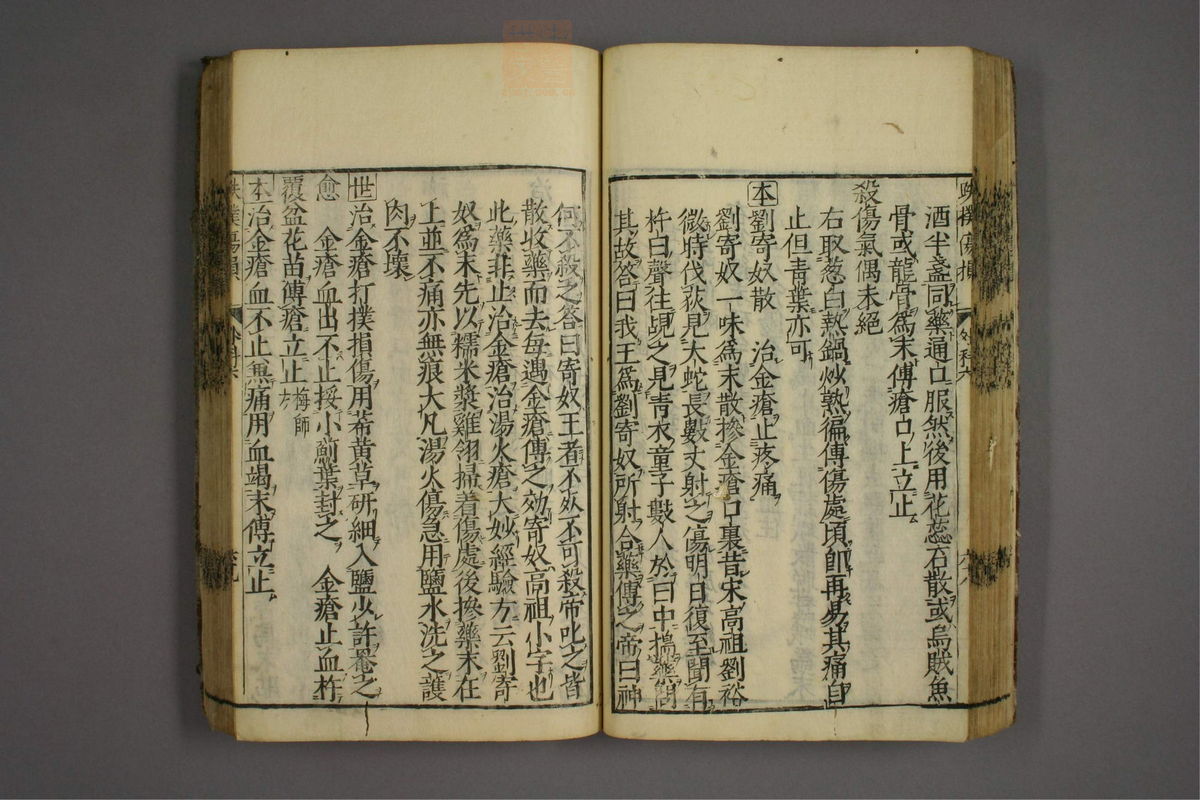 酒半盞同藥通口服然後用花蕊石散或烏賊魚
骨或龍骨爲末傅瘡口上立止
殺傷氣偶未絕
右取葱白熱鍋炒熟徧傅傷處頃卽再易其痛自
止但青葉亦可
本劉寄奴散 治金瘡止疼痛
劉寄奴一味爲末散摻金瘡口裏昔宋高祖劉裕
微時伐荻見大蛇長數丈射之傷明日復至聞有
杵臼聲往覘之見青衣童子數人於臼中搗藥問
其故答曰我王爲劉寄奴所射合藥傅之帝曰神
何不殺之答曰寄奴王者不死不可殺帝叱之皆
散收藥而去每遇金瘡傅之効寄奴高祖小字也
此藥非止治金瘡治湯火瘡大妙經驗方云劉寄
奴爲末先以糯米漿雞翎掃着傷處後摻藥末在
上並不痛亦無痕大凡湯火傷急用鹽水洗之護
肉不壞
世治金瘡打撲損傷用莃黃草研細入鹽少許罨之
愈 金瘡血出不止挼小薊葉封之 金瘡止血杵
覆盆花苗傅瘡立止梅師方
本治金瘡血不止無痛用血竭末傅立止